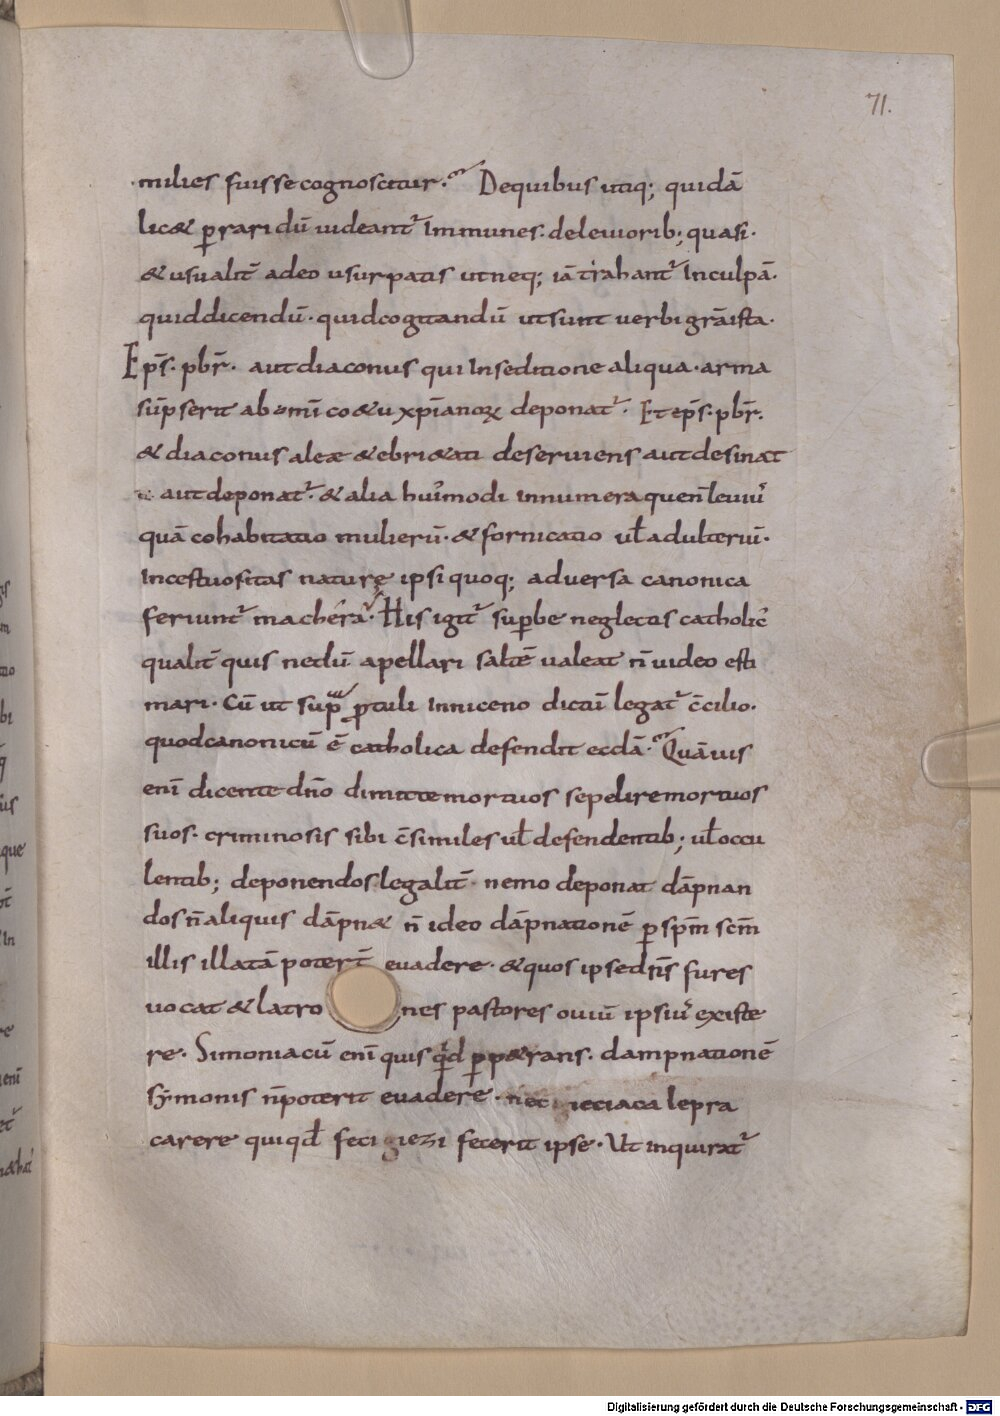 71.
milies fuisse cognoscitur. De quibus utiq; quidā
licæ p̱raridū videant᷑ Immunes. de leviorib; quasi.
& usualit̄ adeo usurpatis ut neq; iā trahant᷑ In culpā.
quid dicendū. quid cogitandū ut sunt verbi grā ista.
Ep̄s. pb̄r. aut diaconus qui In seditione aliqua. arma
sūpserit ab om̄i cœ&u xp̄ianoꝝ deponat᷑. Et ep̄s. pb̄r.
& diaconus aleæ & ebri&ati deserviens aut desinat
aut deponat᷑. & alia hui᷑modi innumera que n̄ leviu᷑
quā cohabitatio mulierū. & fornicatio vƚ adulteriū.
Incestuositas naturę ipsi quoq; adversa canonica
feriunt᷑ macherā. His igit᷑ sup̱be neglectis catholic᷑
qualit̄ quis nedū apellari saltē valeat n̄ video esti
mari. Cū ut sup̱ p̱tuli In niceno dictū legat᷑ c̄cilio.
quod canonicū ē catholica defendit eccl̄ā. Quāvis
enī dicente dn̄o dimitte mortuos sepelire mortuos
suos. criminosis sibi c̄similes vƚ defendentib; vƚ occu
lentib; deponendos legalit̄ nemo deponat dāpnan
dos n̄ aliquis dāpn& n̄ ideo dāpnationē p̱ sp̄m sc̄m
illis illatā poter̄t evadere. & quos ipse dn̄s fures
vocat & latrones pastores oviū ipsiu᷑ existe
re. Simoniacū enī quis qđ p̱p&rans. dampnationē
symonis n̄ poterit evadere. nec ieciaca lepra
carere quiqđ feci giezi fecerit ipse. Ut inquirat᷑
Digitalisierung gefördert durch die Deutsche Forschungsgemeinschaft - DFG